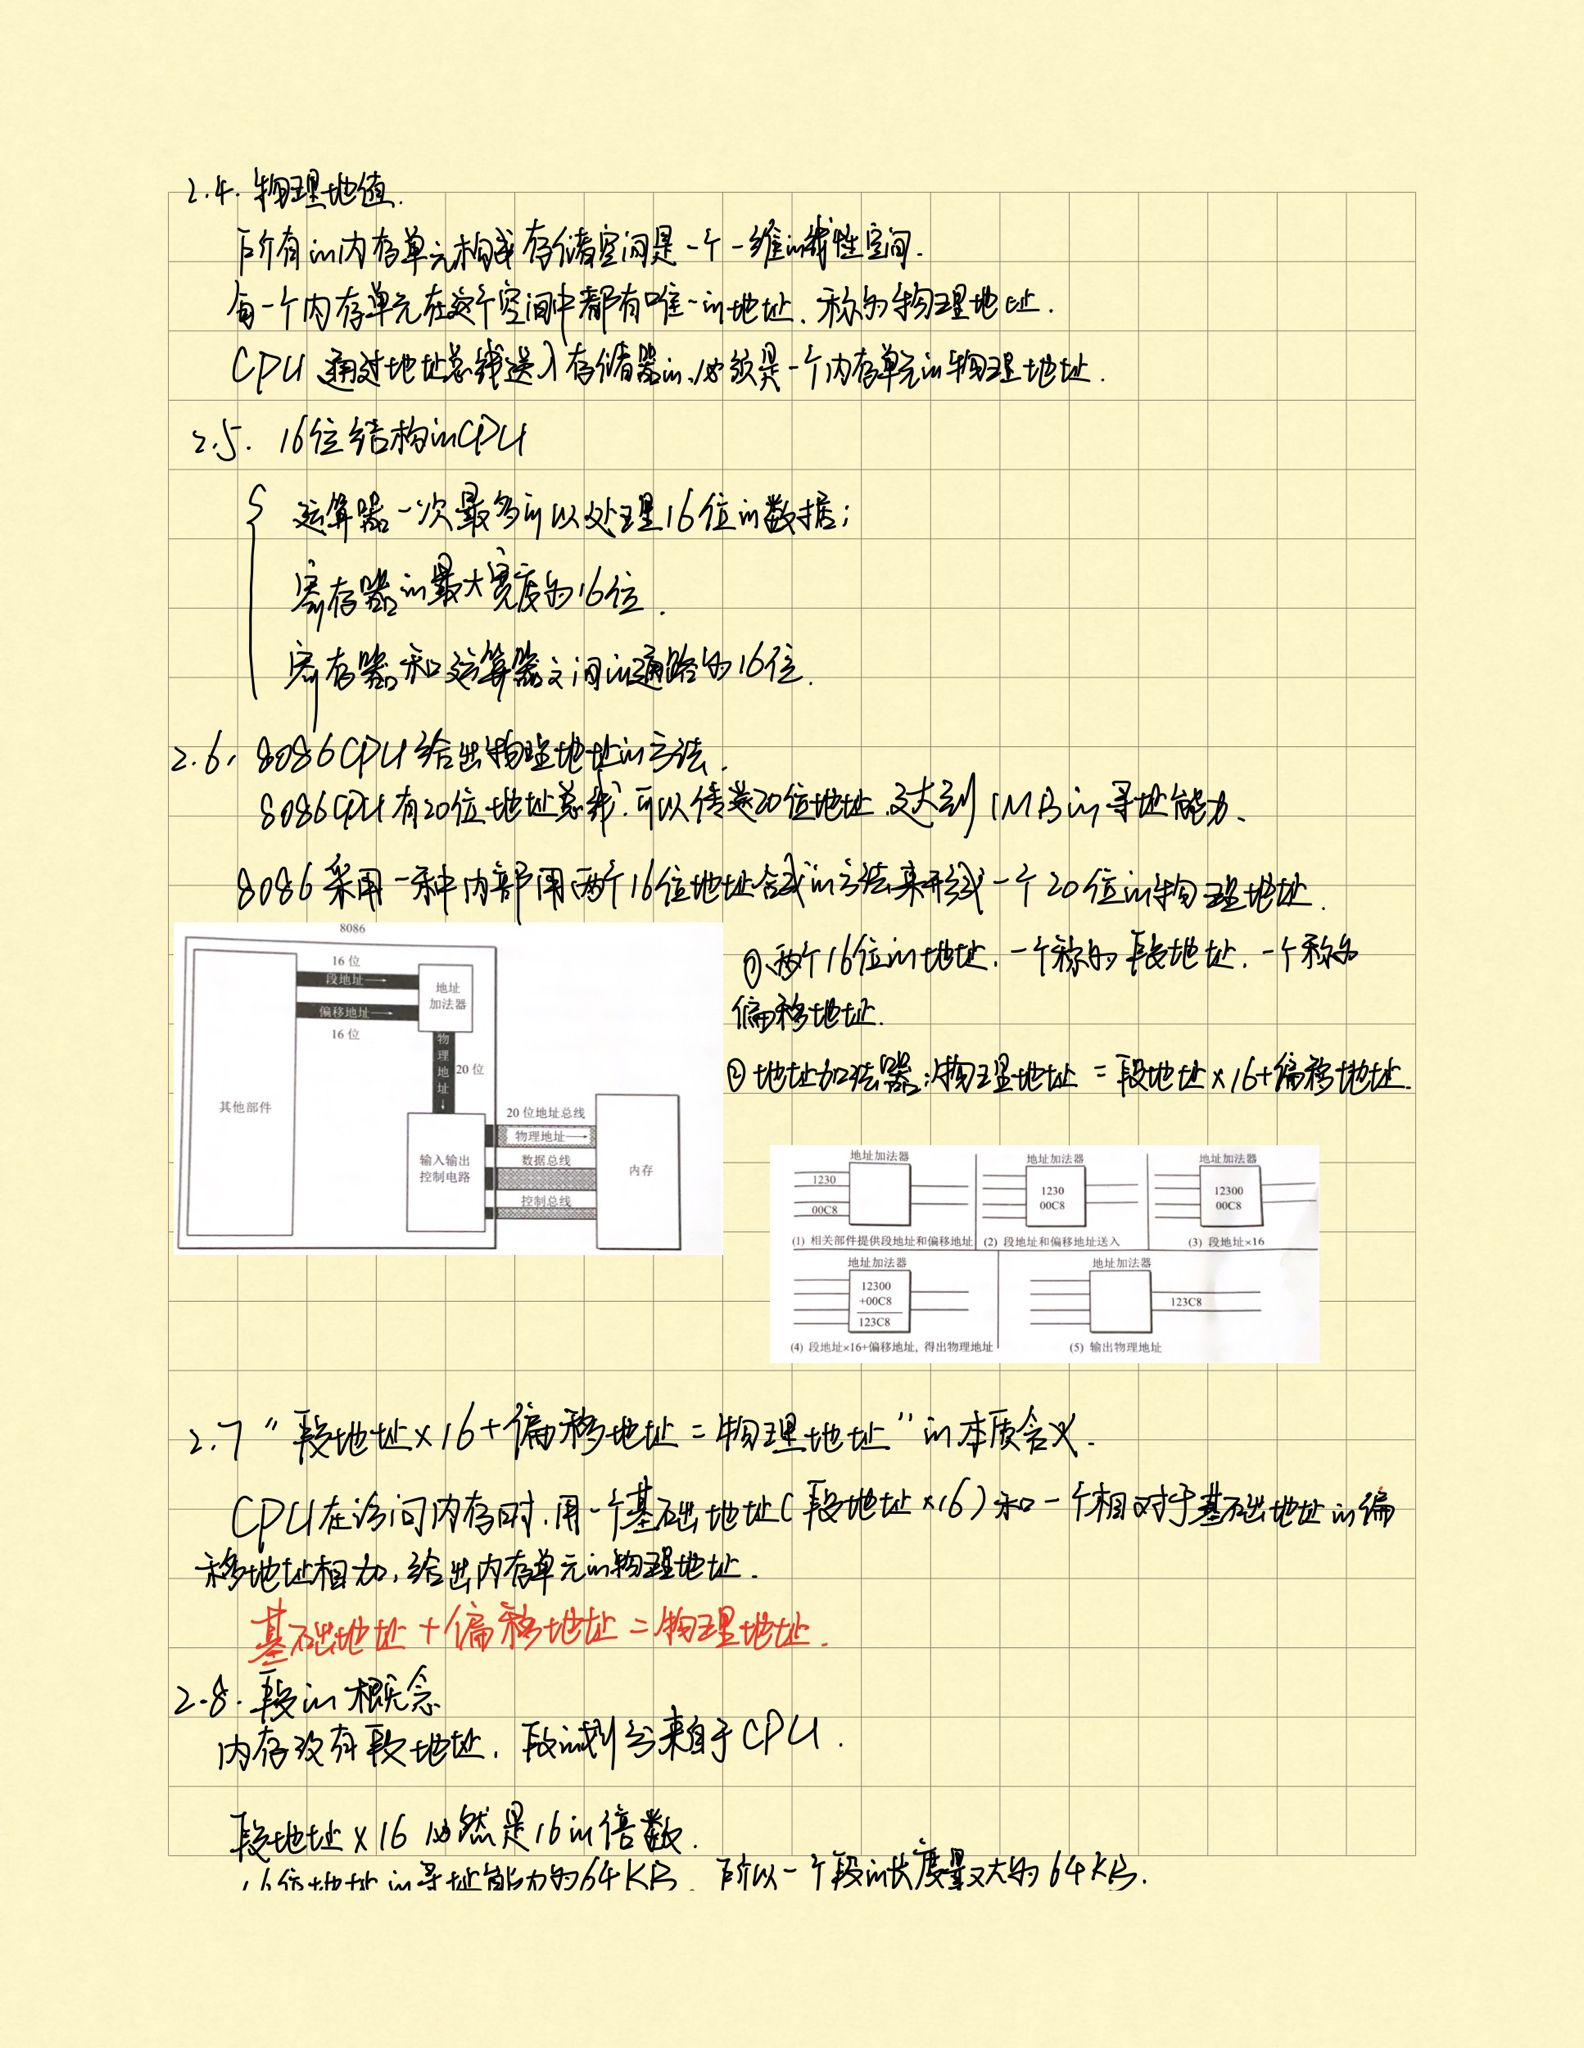 2.4. 物理地值.
所有的内存单元构成存储空间是一个一维的线性空间.
每一个内存单元在这个空间中都有唯一的地址、称为物理地址.
CPU 通过地址总线送入存储器的、必须是一个内存单元的物理地址.
2.5. 16位结构的CPU
运算器一次最多可以处理16位的数据;
寄存器的最大宽度为16位.
寄存器和运算器之间的通路为16位.
2.6. 8086CPU给出物理地址的方法.
8086CPU有20位地址总线.可以传送20位地址.达到1MB的寻址能力.
8086采用一种内部用两个16位地址合成的方法来形成一个20位的物理地址.
8086
16 位
段地址
偏移地址
16 位
地址
加法器
物理地址
20 位
其他部件
输入输出
控制电路
20 位地址总线
物理地址
数据总线
控制总线
内存
①、两个16位的地址.一个称为段地址.一个称为
偏移地址.
② 地址加法器:物理地址 = 段地址×16+偏移地址.
地址加法器
1230
00C8
(1) 相关部件提供段地址和偏移地址
地址加法器
1230
00C8
(2) 段地址和偏移地址送入
地址加法器
12300
00C8
(3) 段地址×16
地址加法器
12300
+00C8
123C8
(4) 段地址×16+偏移地址, 得出物理地址
地址加法器
123C8
(5) 输出物理地址
2.7 "段地址×16+偏移地址=物理地址"的本质含义.
CPU在访问内存时.用一个基础地址(段地址×16)和一个相对于基础地址的偏
移地址相加,给出内存单元的物理地址.
基础地址+偏移地址=物理地址.
2.8. 段的概念
内存没有段地址. 段的划分来自于CPU.
段地址×16 必然是16的倍数.
16位地址的寻址能力为64KB. 所以一个段的长度最大为64KB.